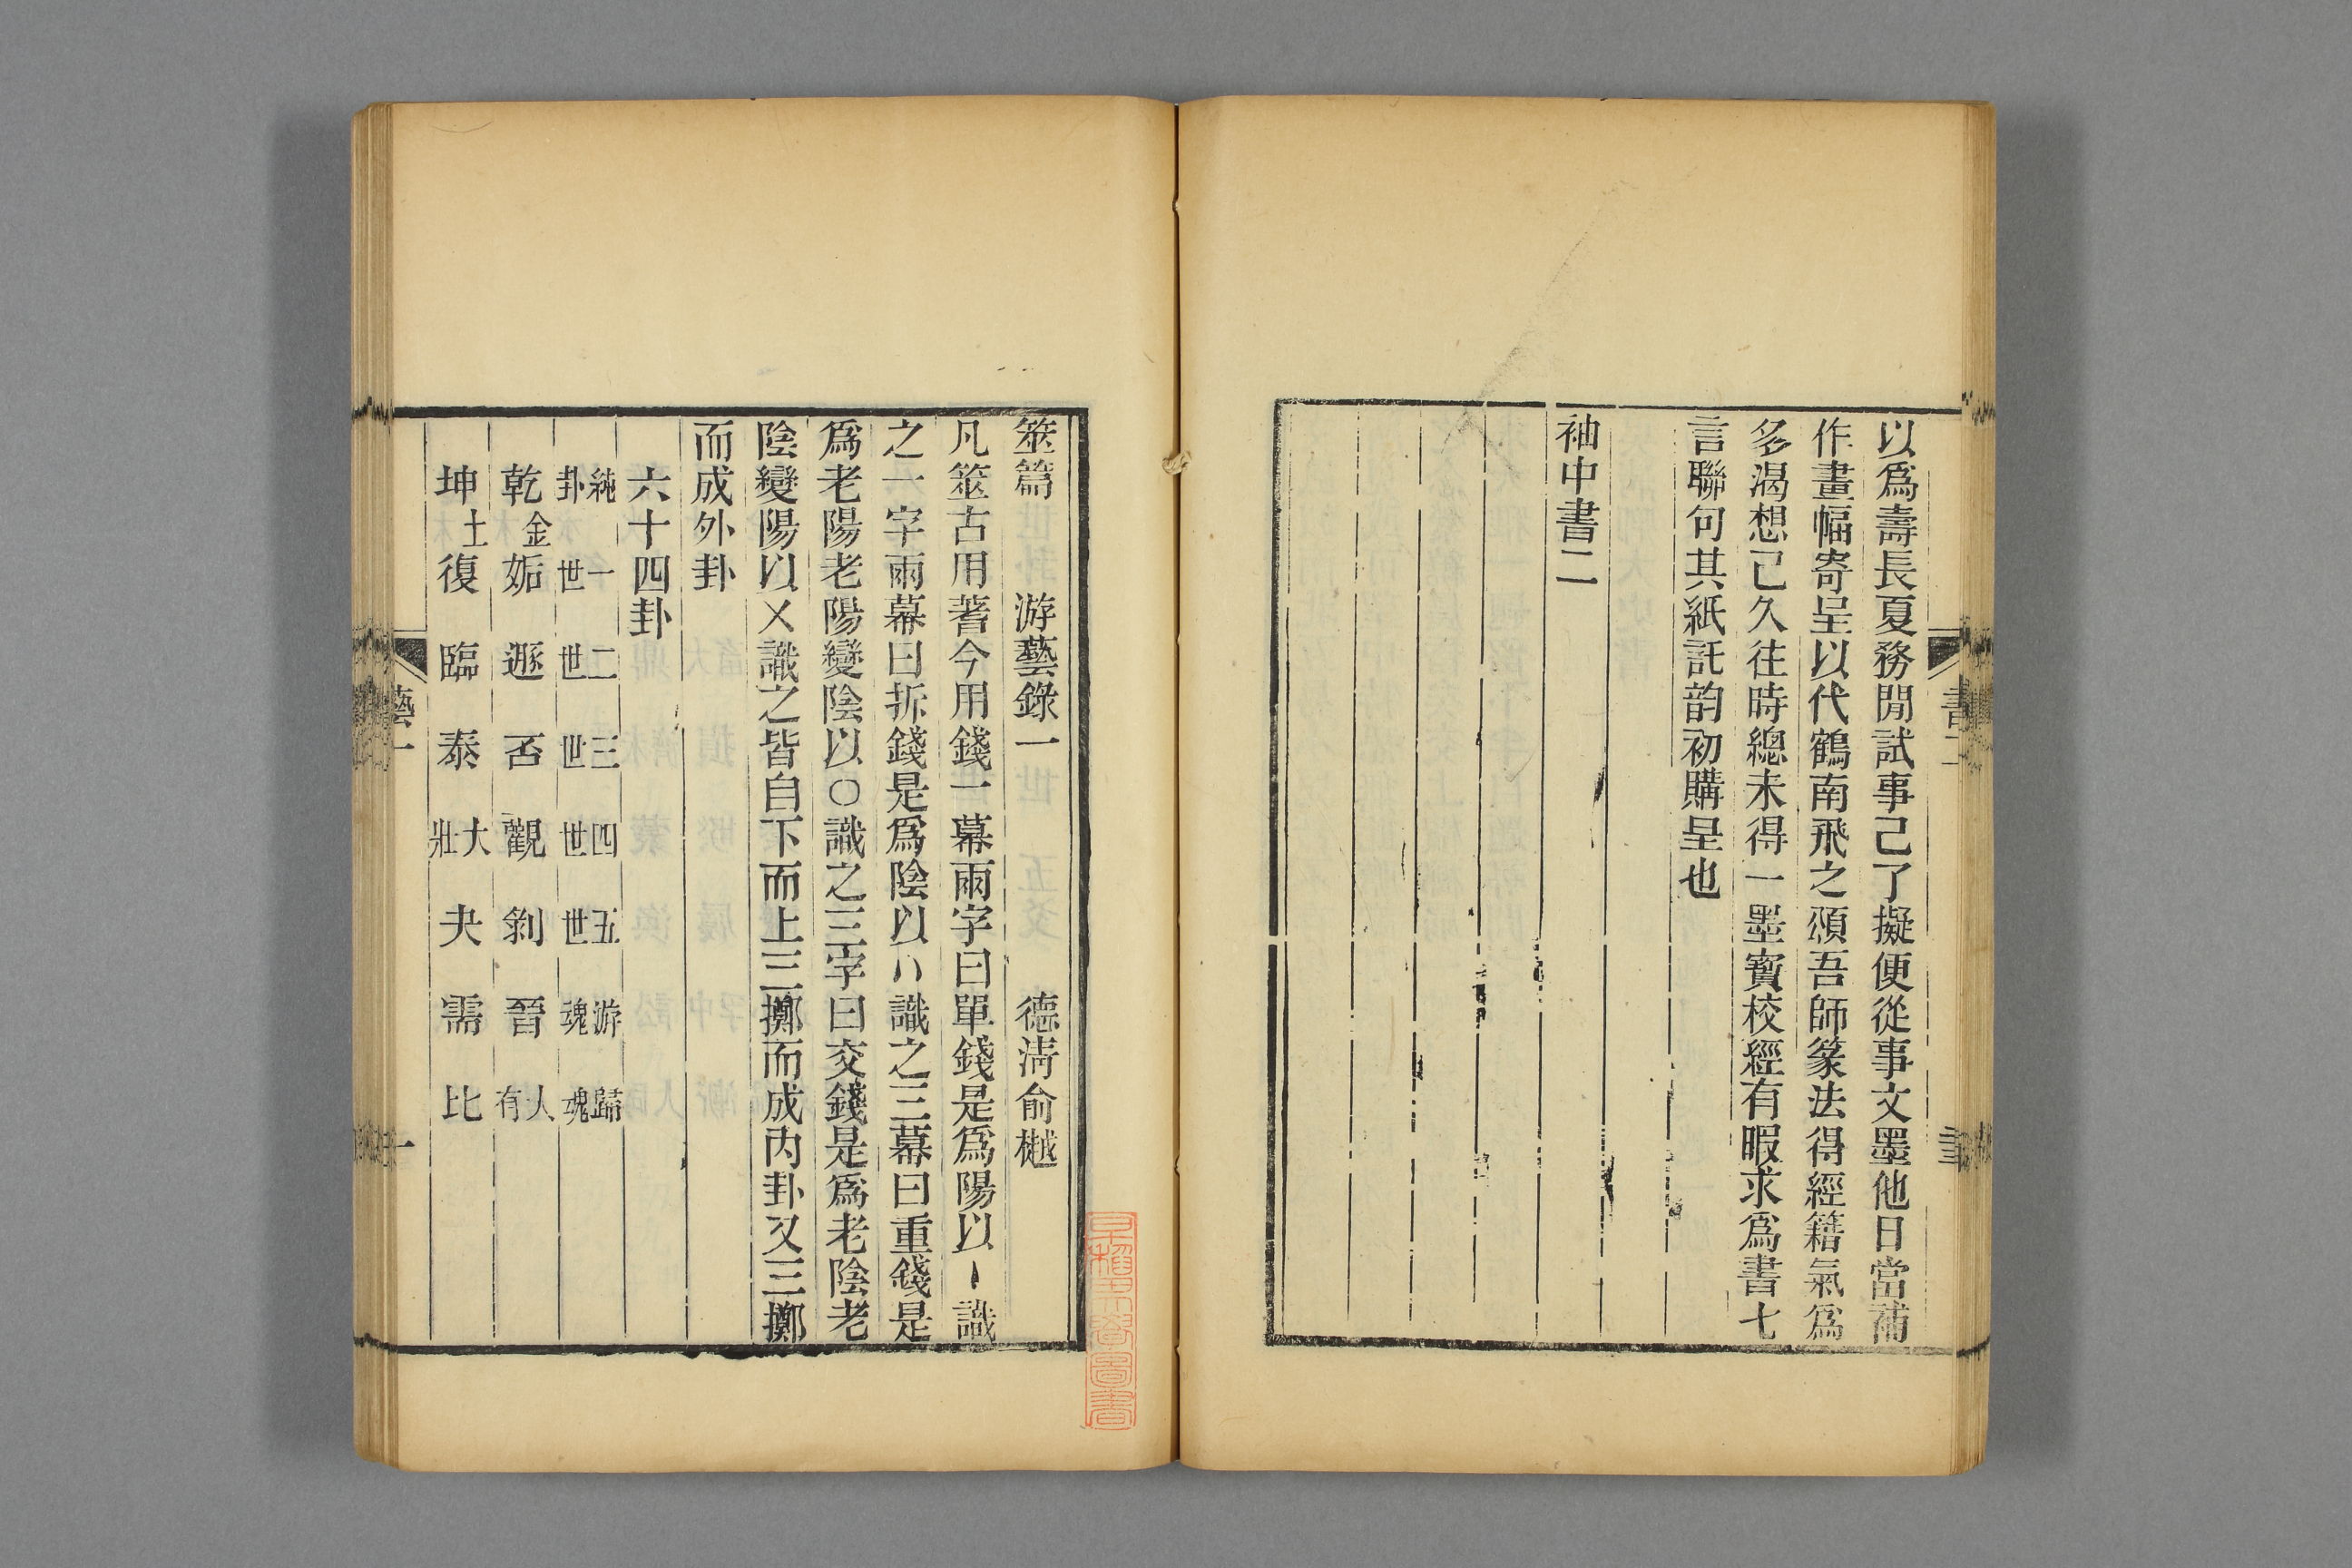 以爲壽長夏務閒試事已了擬便從事文墨他日當補
作畫幅寄呈以代鶴南飛之頌吾師篆法得經籍氣爲
多渴想已久往時總未得一墨寶校經有暇求爲書七
言聯句其紙託韵初購呈也
袖中書二
書二
筮篇 游藝錄一 德淸俞樾
凡筮古用蓍今用錢一幕兩字曰單錢是爲陽以丶識
之一字兩幕曰拆錢是爲陰以八識之三幕曰重錢是
爲老陽老陽變陰以○識之三字曰交錢是爲老陰老
陰變陽以乂識之皆自下而上三擲而成內卦又三擲
而成外卦
六十四卦
純卦 一世 二世 三世 四世 五世 游魂 歸魂
乾金 姤 遯 否 觀 剝 晉 大有
坤土 復 臨 泰 大壯 夬 需 比
藝一 一